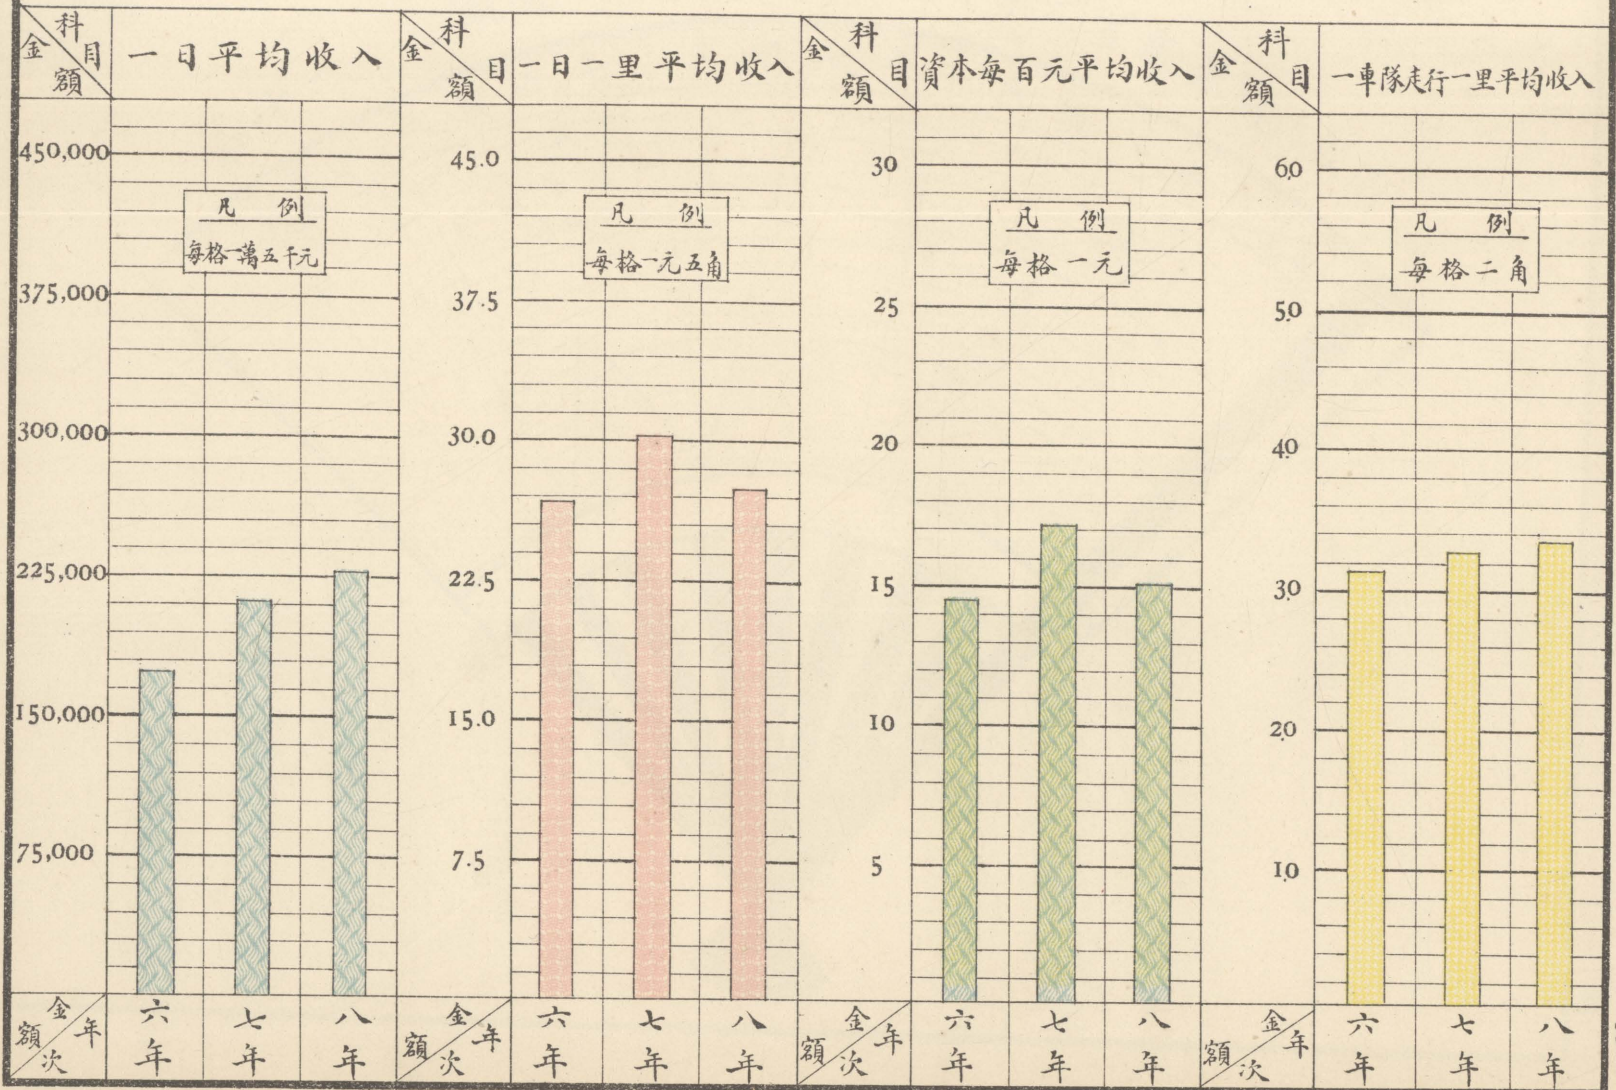 科目
金額
一日平均收入
450,000
375,000
300,000
225,000
150,000
75,000
凡例
每格一萬五千元
金額
年次
六年
七年
八年
科目
金額
一日一里平均收入
45.0
37.5
30.0
22.5
15.0
7.5
凡例
每格一元五角
金額
年次
六年
七年
八年
科目
金額
資本每百元平均收入
30
25
20
15
10
5
凡例
每格一元
金額
年次
六年
七年
八年
科目
金額
一車隊走行一里平均收入
6.0
5.0
4.0
3.0
2.0
1.0
凡例
每格二角
金額
年次
六年
七年
八年